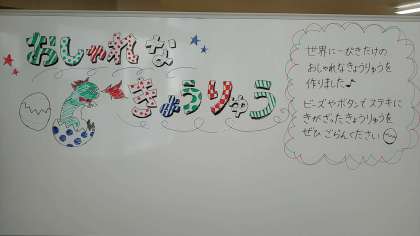 おしゃれな
きょうりゅう
世界に一ぴきだけの
おしゃれなきょうりゅうを
作りました♪
ビーズやボタンでステキに
きがざったきょうりゅうを
ぜひ ごらんください